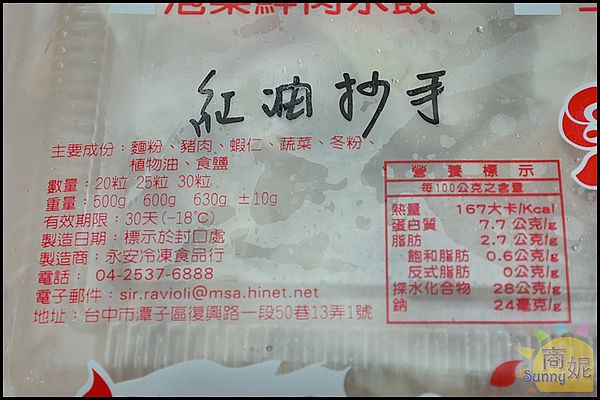 泡菜鮮肉水餃
紅油抄手
主要成份：麵粉、豬肉、蝦仁、蔬菜、冬粉、
植物油、食鹽
數量：20粒 25粒 30粒
重量：500g 600g 630g ±10g
有效期限：30天(-18℃)
製造日期：標示於封口處
製造商：永安冷凍食品行
電話： 04-2537-6888
電子郵件：sir.ravioli@msa.hinet.net
地址：台中市潭子區復興路一段50巷13弄1號
營養標示
每100公克之含量
熱量 167大卡/Kcal
蛋白質 7.7公克/g
脂肪 2.7公克/g
飽和脂肪 0.6公克/g
反式脂肪 0公克/g
探水化合物 28公克/g
鈉 24毫克/g
商妮
Sunny